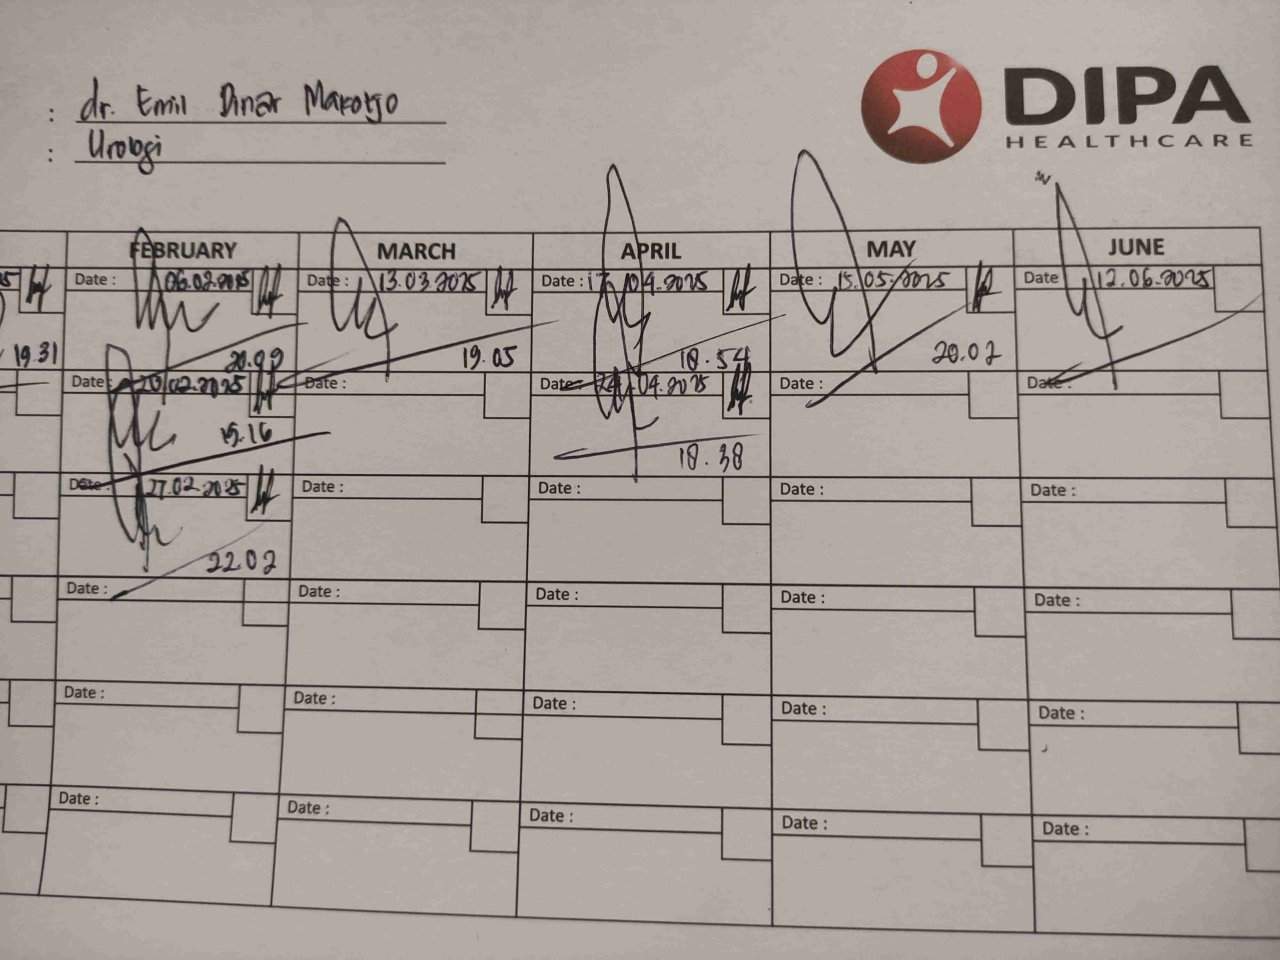 : dr. Emil Dinar Makotjo
: Urologi
DIPA
HEALTHCARE
FEBRUARY MARCH APRIL MAY JUNE
Date : 06.02.2025 Date : 13.03.2025 Date : 17.04.2025 Date : 15.05.2025 Date 12.06.2025
19.31 19.05 18.54 20.02
Date : 20.02.2025 Date : Date : 24.04.2025 Date : Date :
19.16 18.38
Date : 27.02.2025 Date : Date : Date : Date :
22.02
Date : Date : Date : Date : Date :
Date : Date : Date : Date : Date :
Date : Date : Date : Date : Date :